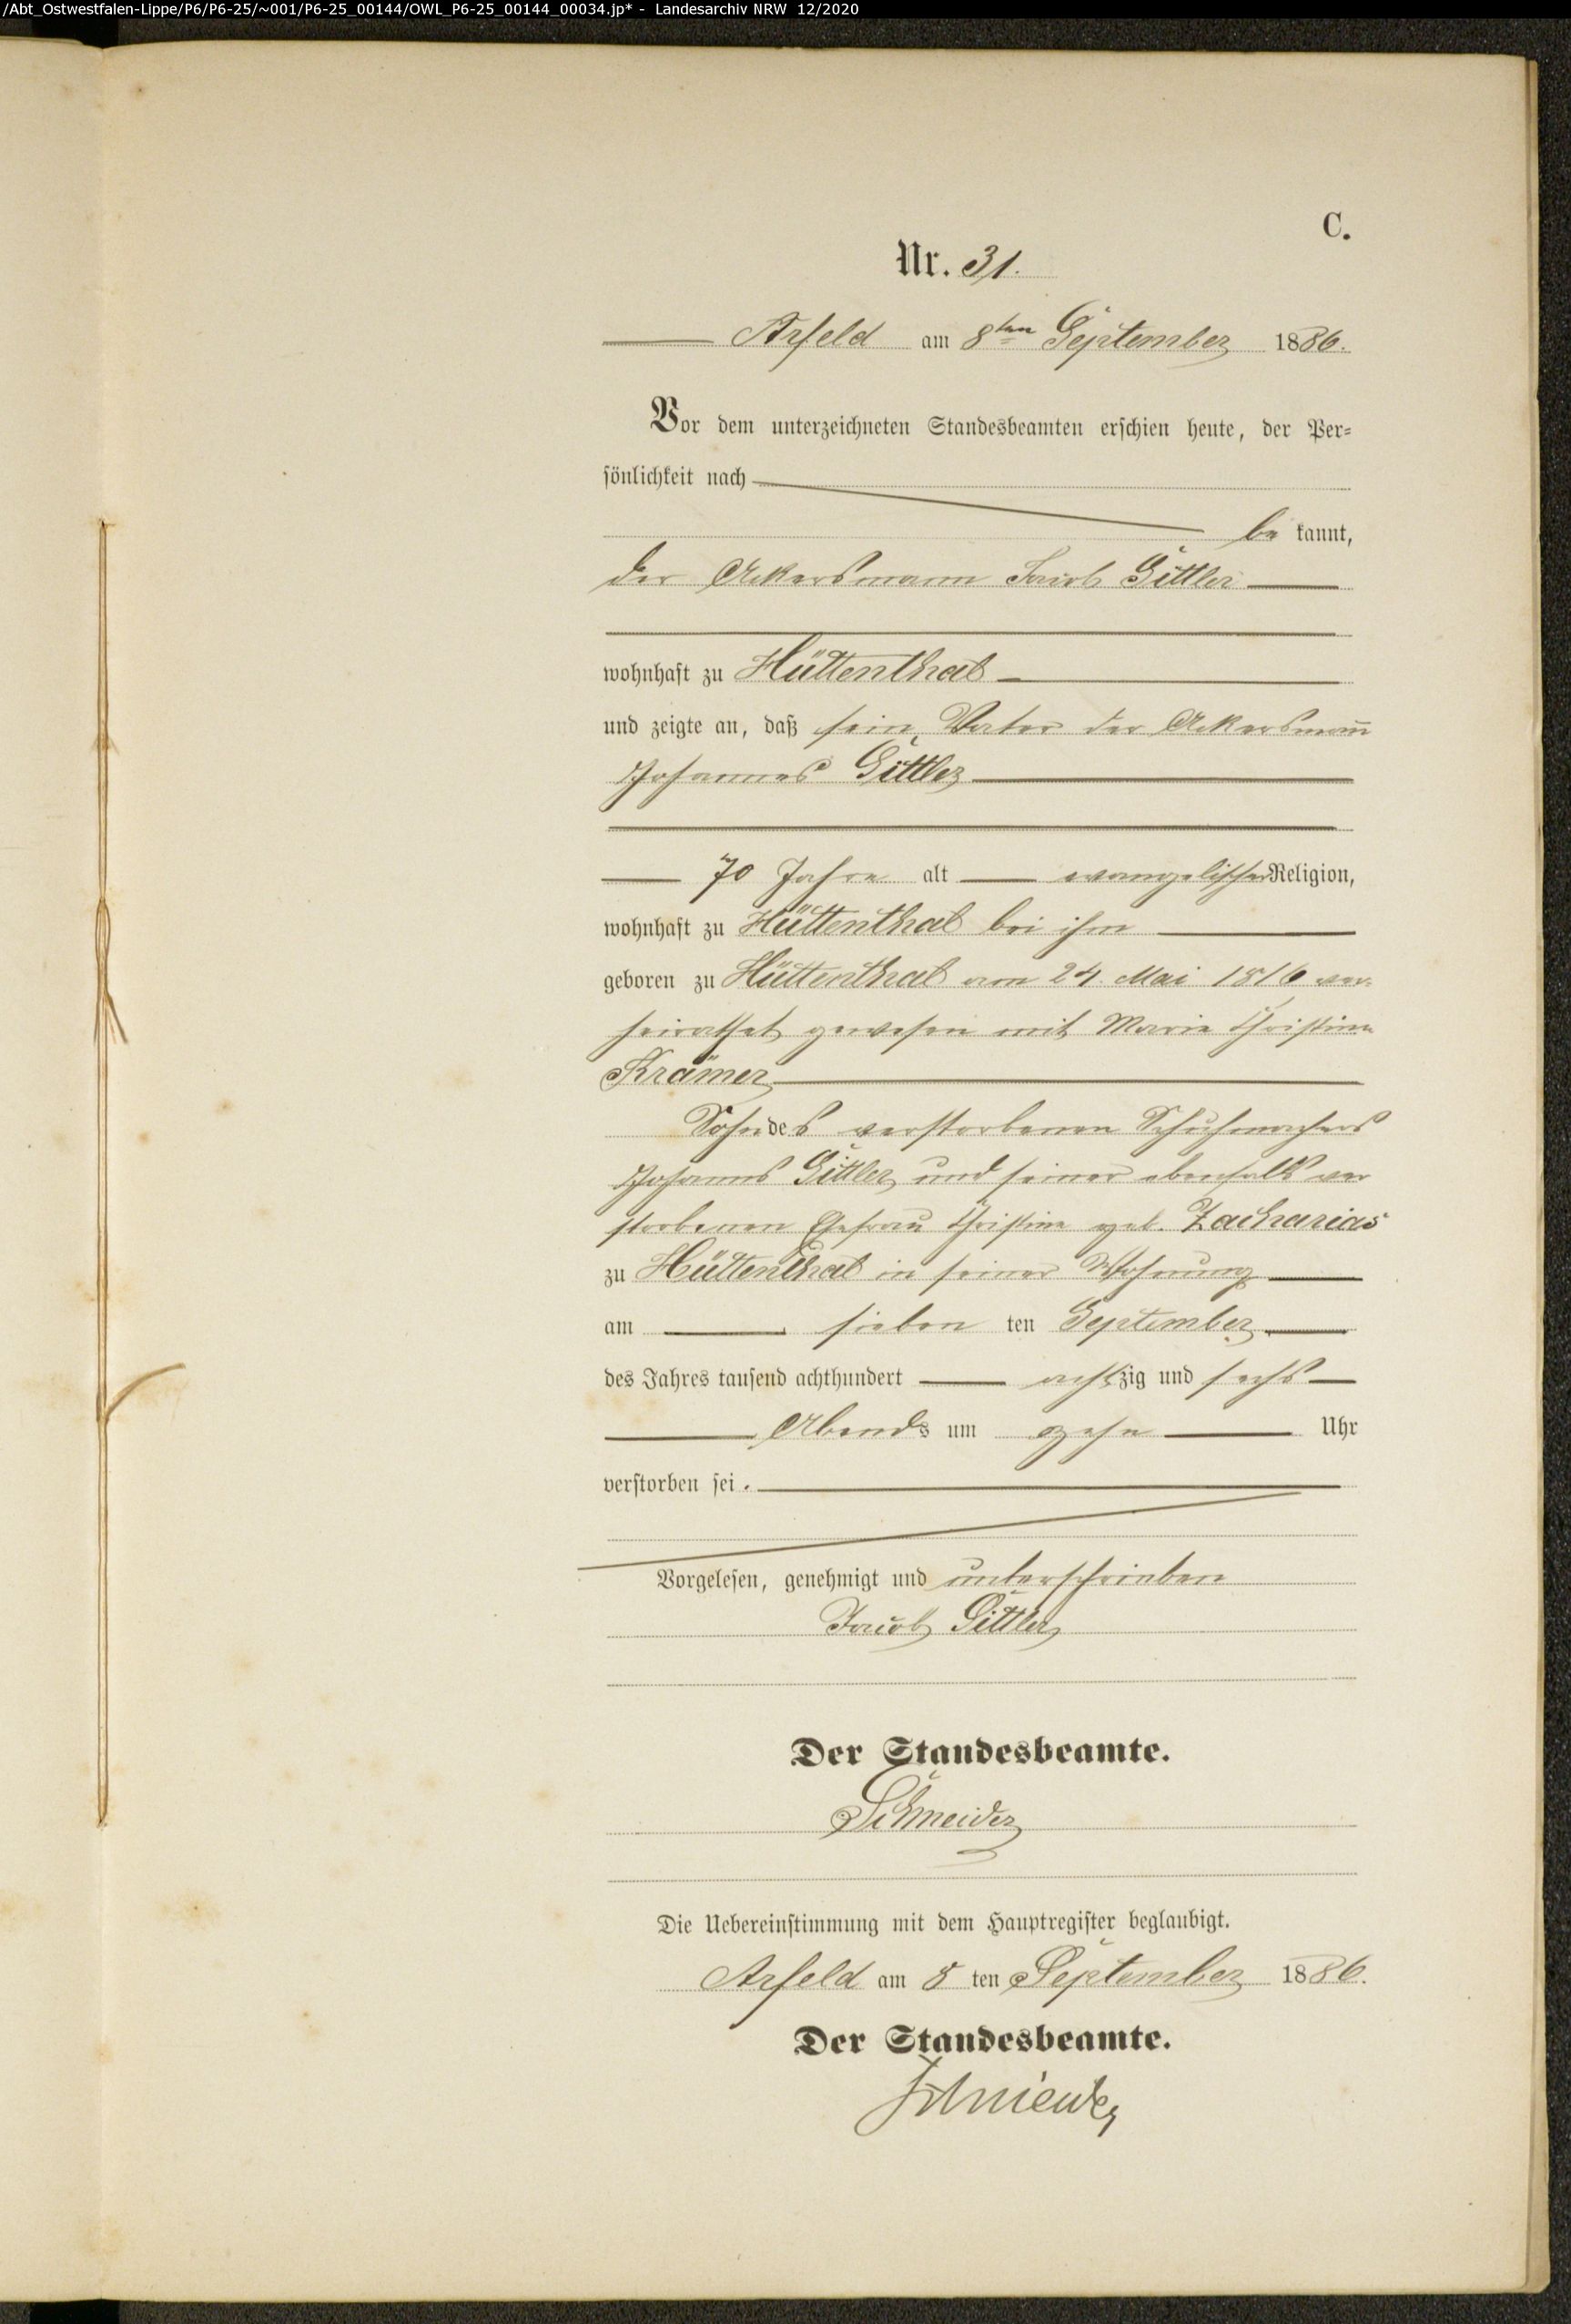 /Abt_Ostwestfalen-Lippe/P6/P6-25/~001/P6-25_00144/OWL_P6-25_00144_00034.jp* - Landesarchiv NRW 12/2020
C.
Nr. 31.
Arfeld am 8ten September 1886.
Vor dem unterzeichneten Standesbeamten erschien heute, der Per-
sönlichkeit nach
be kannt,
der Ackersmann Jacob Gittler
wohnhaft zu Hüttenthal
und zeigte an, daß sein Vater der Ackersmann
Johannes Gittler
70 Jahre alt evangelischer Religion,
wohnhaft zu Hüttenthal bei ihm
geboren zu Hüttenthal am 24. Mai 1816 ver-
heirathet gewesen mit Marie Christine
Krämer
Sohn des verstorbenen Schuhmachers
Johannes Gittler und seiner ebenfalls ver
storbenen Ehefrau Christine geb. Zacharias
zu Hüttenthal in seiner Wohnung
am sieben ten September
des Jahres tausend achthundert achtzig und sechs
Abends um zehn Uhr
verstorben sei.
Vorgelesen, genehmigt und unterschrieben
Jacob Gittler
Der Standesbeamte.
Schneider
Die Uebereinstimmung mit dem Hauptregister beglaubigt.
Arfeld am 8 ten September 1886.
Der Standesbeamte.
Schneider